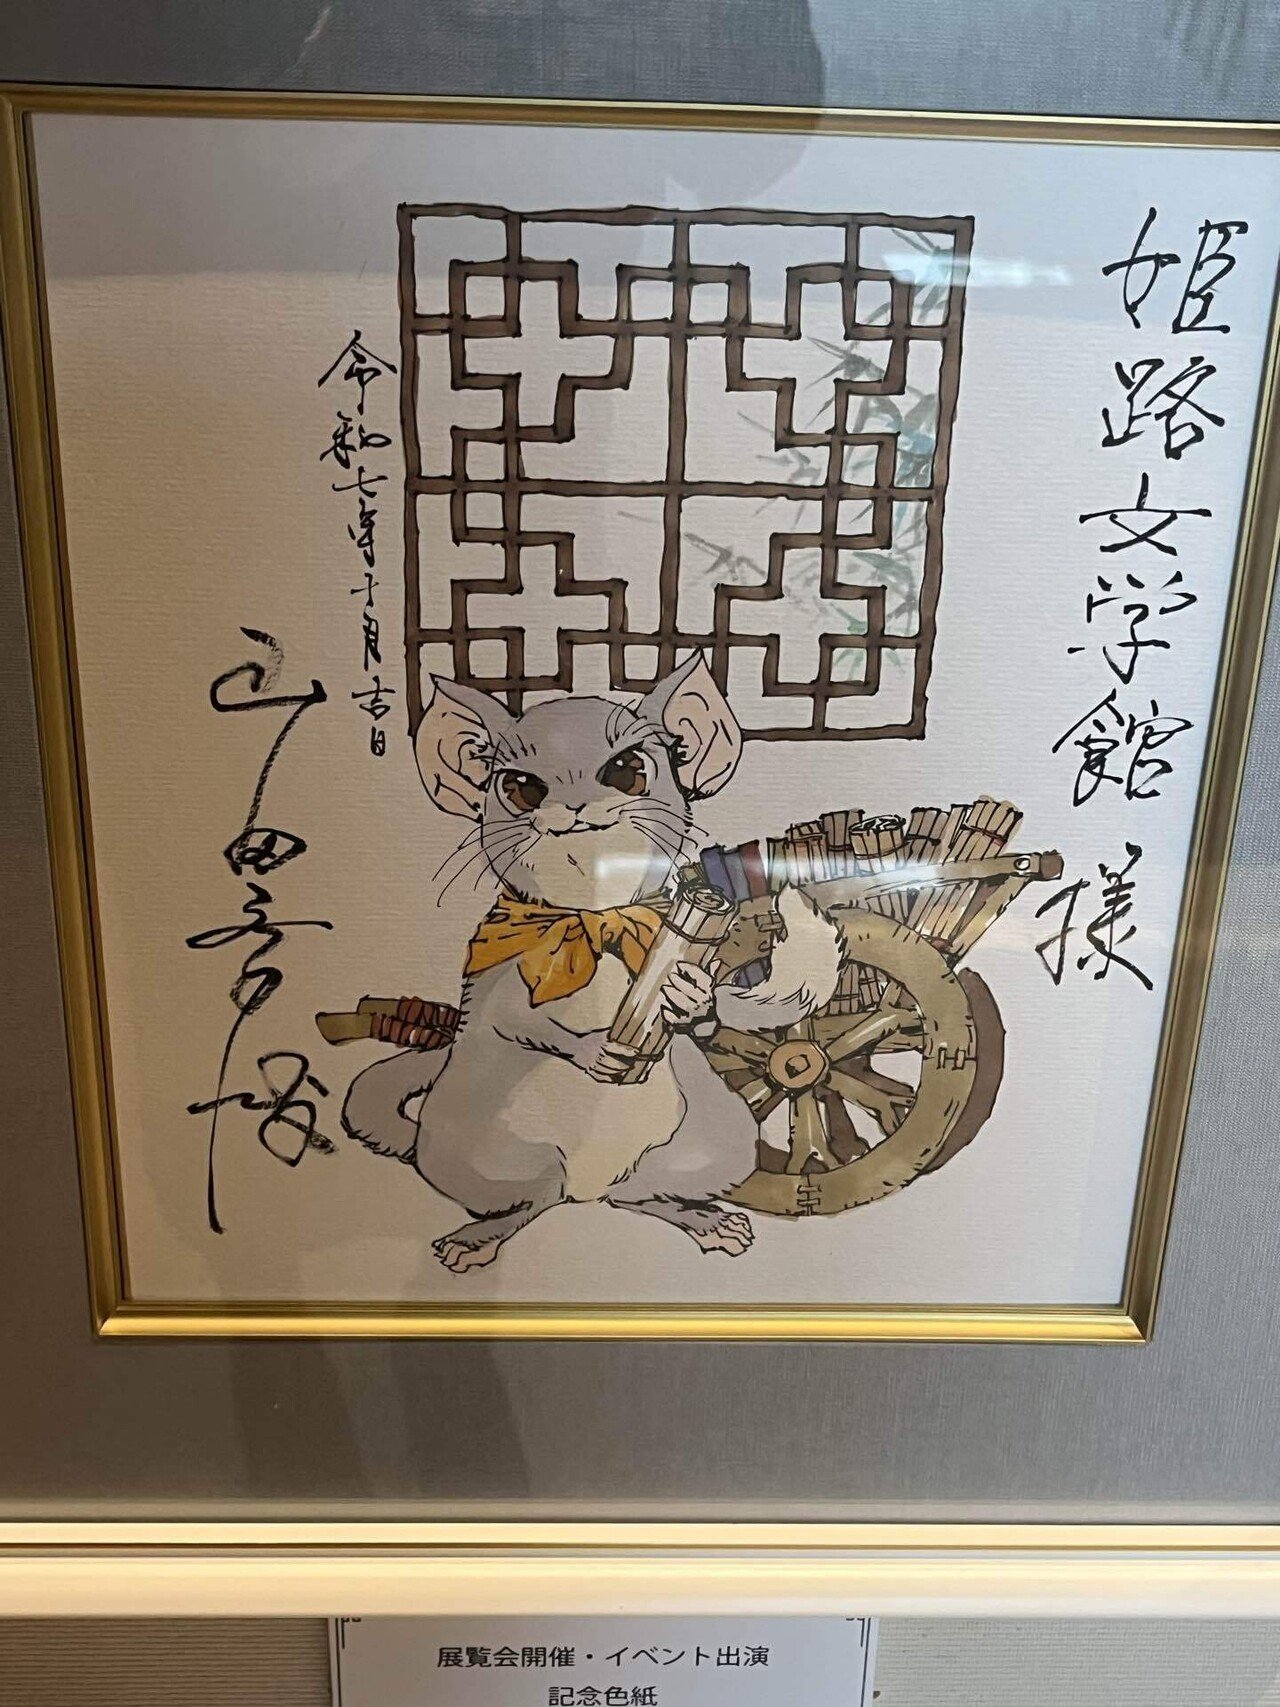 姫路文学館 様
令和七年十月吉日
山田章博
展覧会開催・イベント出演
記念色紙